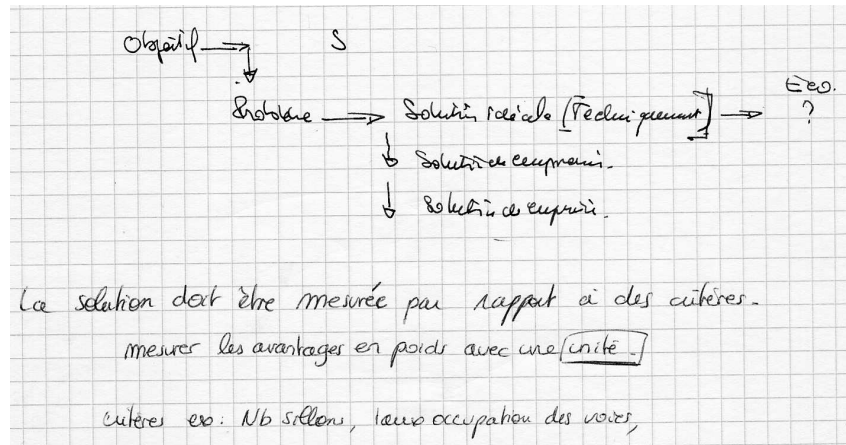 Objectif → S
Problème → Solution idéale [Techniquement] → Eco. ?
↓ Solution de compromis.
↓ Solution de compromis.
La solution doit être mesurée par rapport à des critères.
mesurer les avantages en poids avec une unité.
critères ex: Nb sillons, taux occupation des voies,